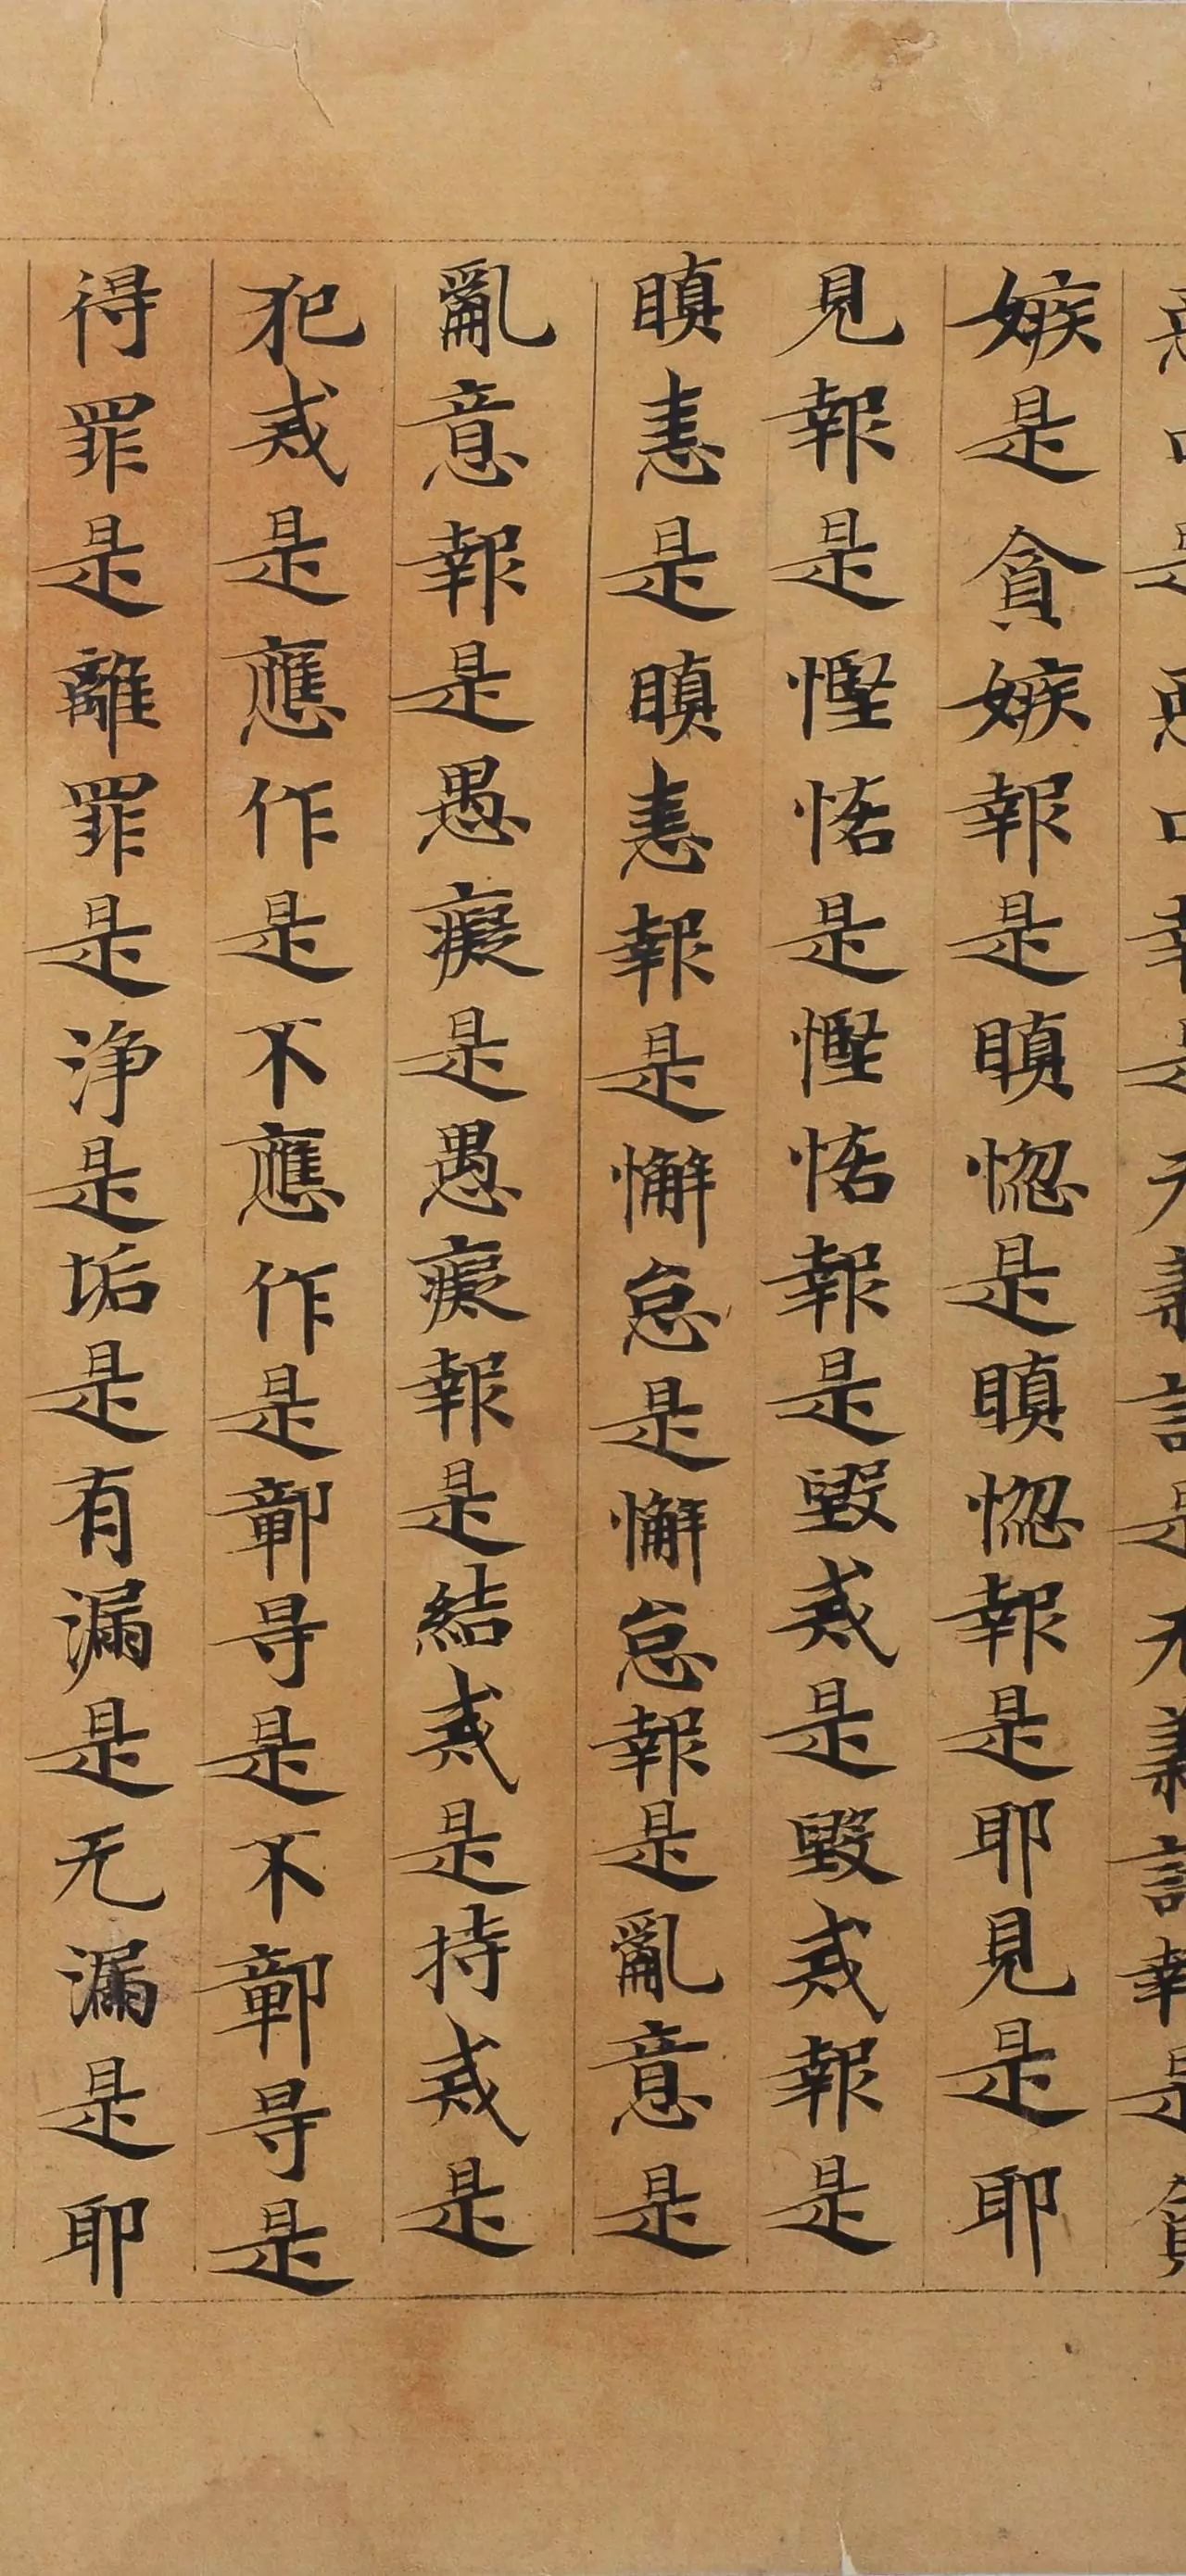 惡口是惡口報是无義語是无義語報是貪
嫉是貪嫉報是瞋惱是瞋惱報是耶見是耶
見報是慳悋是慳悋報是毀戒是毀戒報是
瞋恚是瞋恚報是懈怠是懈怠報是亂意是
亂意報是愚癡是愚癡報是結戒是持戒是
犯戒是應作是不應作是鄣㝵是不鄣㝵是
得罪是離罪是浄是垢是有漏是无漏是耶